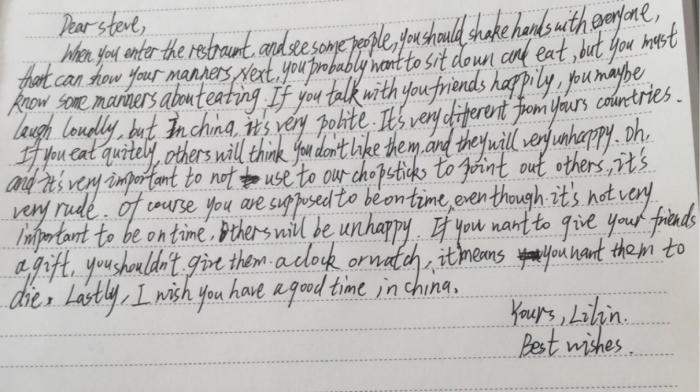 Dear steve,
When you enter the restraunt, and see some people, you should shake hands with everyone,
that can show your manners. Next, you probably want to sit down and eat, but you must
know some manners about eating. If you talk with you friends happily, you maybe
laugh loudly, but In china, it's very polite. It's very different from yours countries.
If you eat quitely, others will think you don't like them, and they will very unhappy. Oh,
and it's very important to not use to our chopsticks to point out others, it's
very rude. Of course you are supposed to be on time, even though it's not very
important to be on time. Others will be unhappy. If you want to give your friends
a gift, you shouldn't give them a clock or watch, it means you want them to
die. Lastly, I wish you have a good time in china.
Yours, Lilin.
Best wishes.